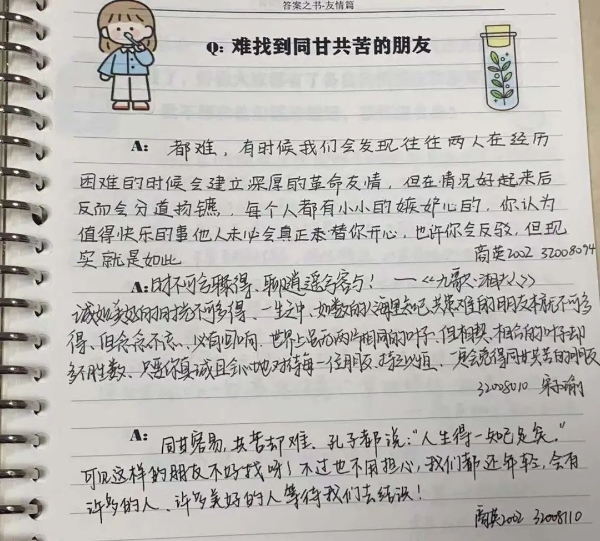 答案之书-友情篇
Q: 难找到同甘共苦的朋友
A: 都难，有时候我们会发现往往两人在经历
困难的时候会建立深厚的革命友情，但在情况好起来后
反而会分道扬镳，每个人都有小小的嫉妒心的，你认为
值得快乐的事他人未必会真正来替你开心，也许你会反驳，但现
实就是如此
商英2002 32008094
A: 时不可兮骤得，聊逍遥兮容与！——《九歌·湘夫人》
诚如美好的时光不可多得，一生之中，如数的人海里去吧，共患难的朋友本就不可多
得，但念念不忘，必有回响，世界上虽无两片相同的叶子，但相契、相合的叶子却
多不胜数，只要你真诚且会心地对待每一位朋友，持之以恒，一定会觅得同甘共苦的朋友
32008010
A: 同甘容易，共苦却难，孔子都说：“人生得一知己足矣。”
可见这样的朋友不好找呀！不过也不用担心，我们都还年轻，会有
许多的人，许多美好的人等待我们去结识！
商英2002 32008110